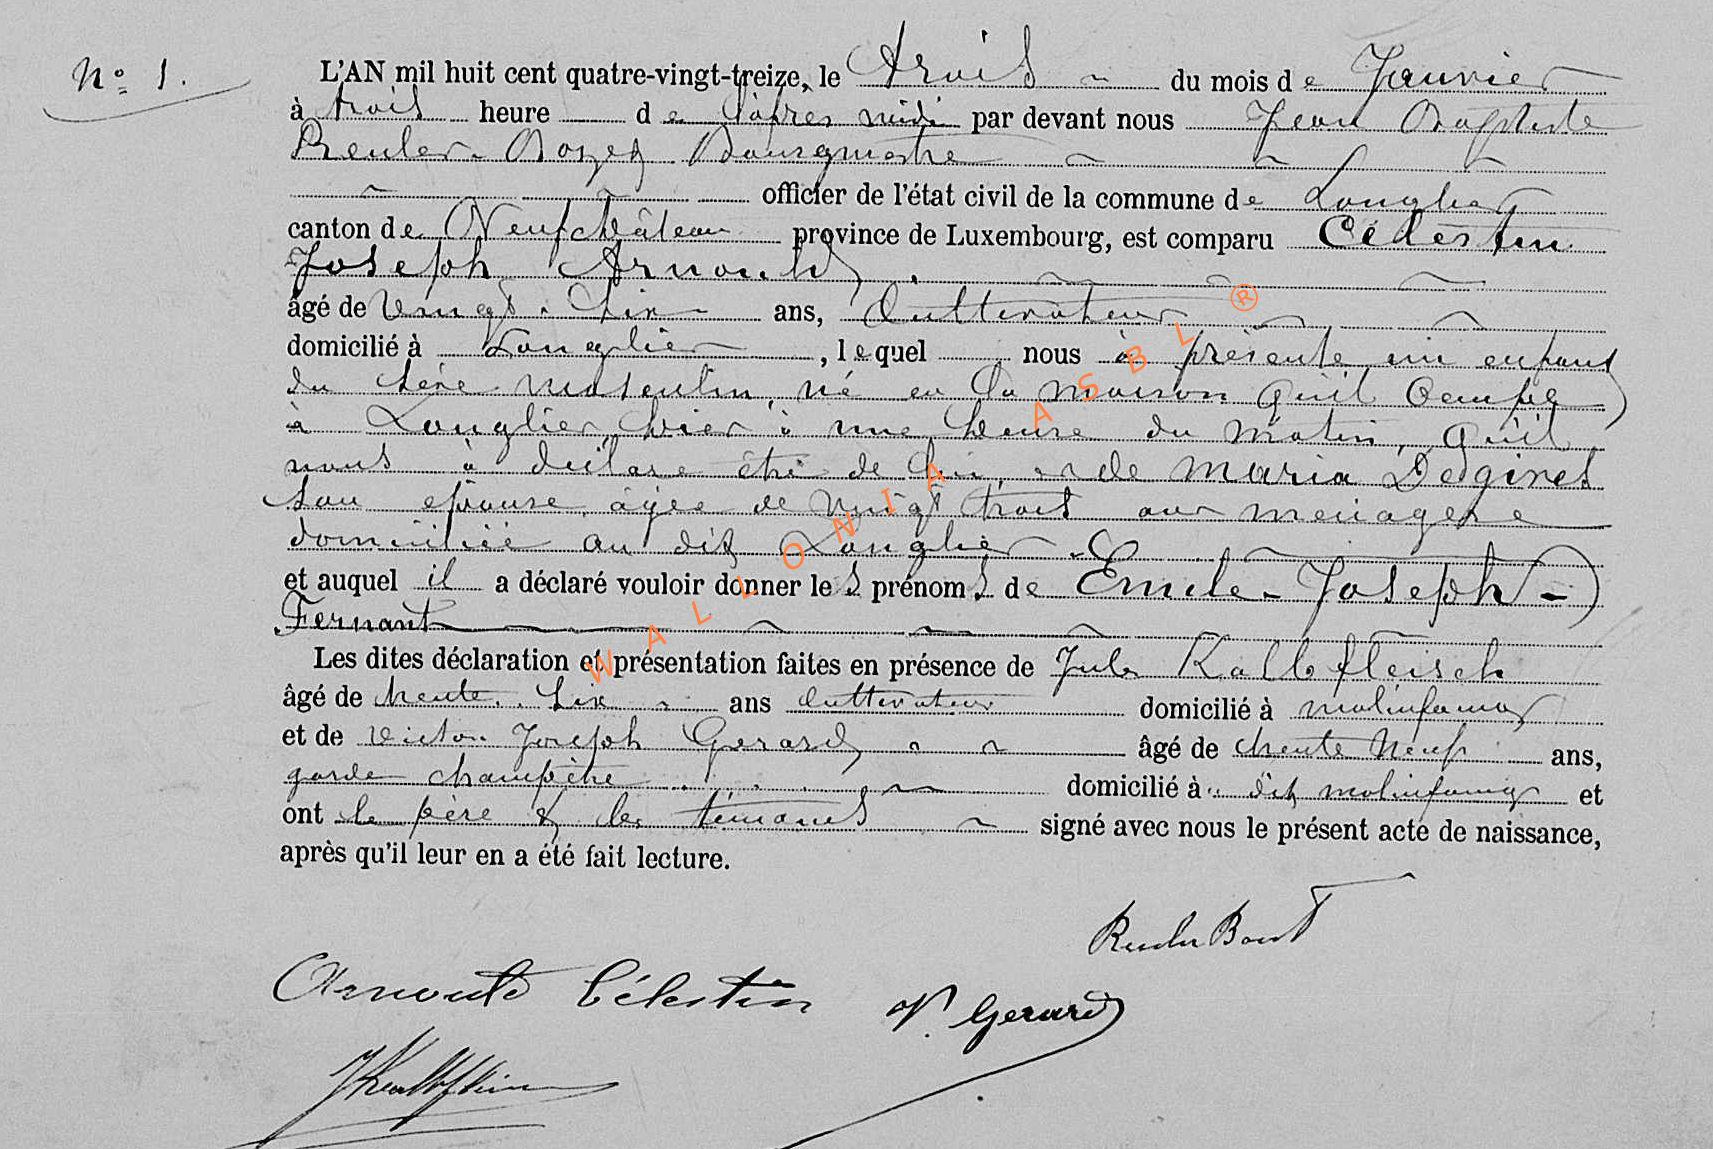 N° 1.
L'AN mil huit cent quatre-vingt-treize, le trois du mois de Janvier
à trois heure de l'après midi par devant nous Jean Baptiste
Reuler Bourgmestre
officier de l'état civil de la commune de Longlier
canton de Neufchâteau province de Luxembourg, est comparu Célèstin
Joseph Arnould
âgé de vingt six ans, Cultivateur
domicilié à Longlier, lequel nous à présenté un enfant
du sexe masculin, né en la maison qu'il occupe
à Longlier hier à une heure du matin, qu'il
nous à déclaré être de lui et de Maria Desginet
son épouse âgée de vingt trois ans menagère
domiciliée au dit Longlier
et auquel il a déclaré vouloir donner les prénoms de Emile Joseph
Fernant
Les dites déclaration et présentation faites en présence de Jules Kalbfleisch
âgé de trente six ans cultivateur domicilié à molinfaing
et de Victor Joseph Gerard âgé de trente neuf ans,
garde champêtre domicilié à dit molinfaing et
ont le père & les témoins signé avec nous le présent acte de naissance,
après qu'il leur en a été fait lecture.
Arnould Célestin
V. Gerard
WALLONIA ASBL ®